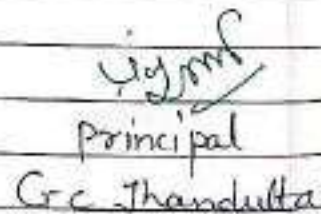 Principal
G.C. Jhandutta